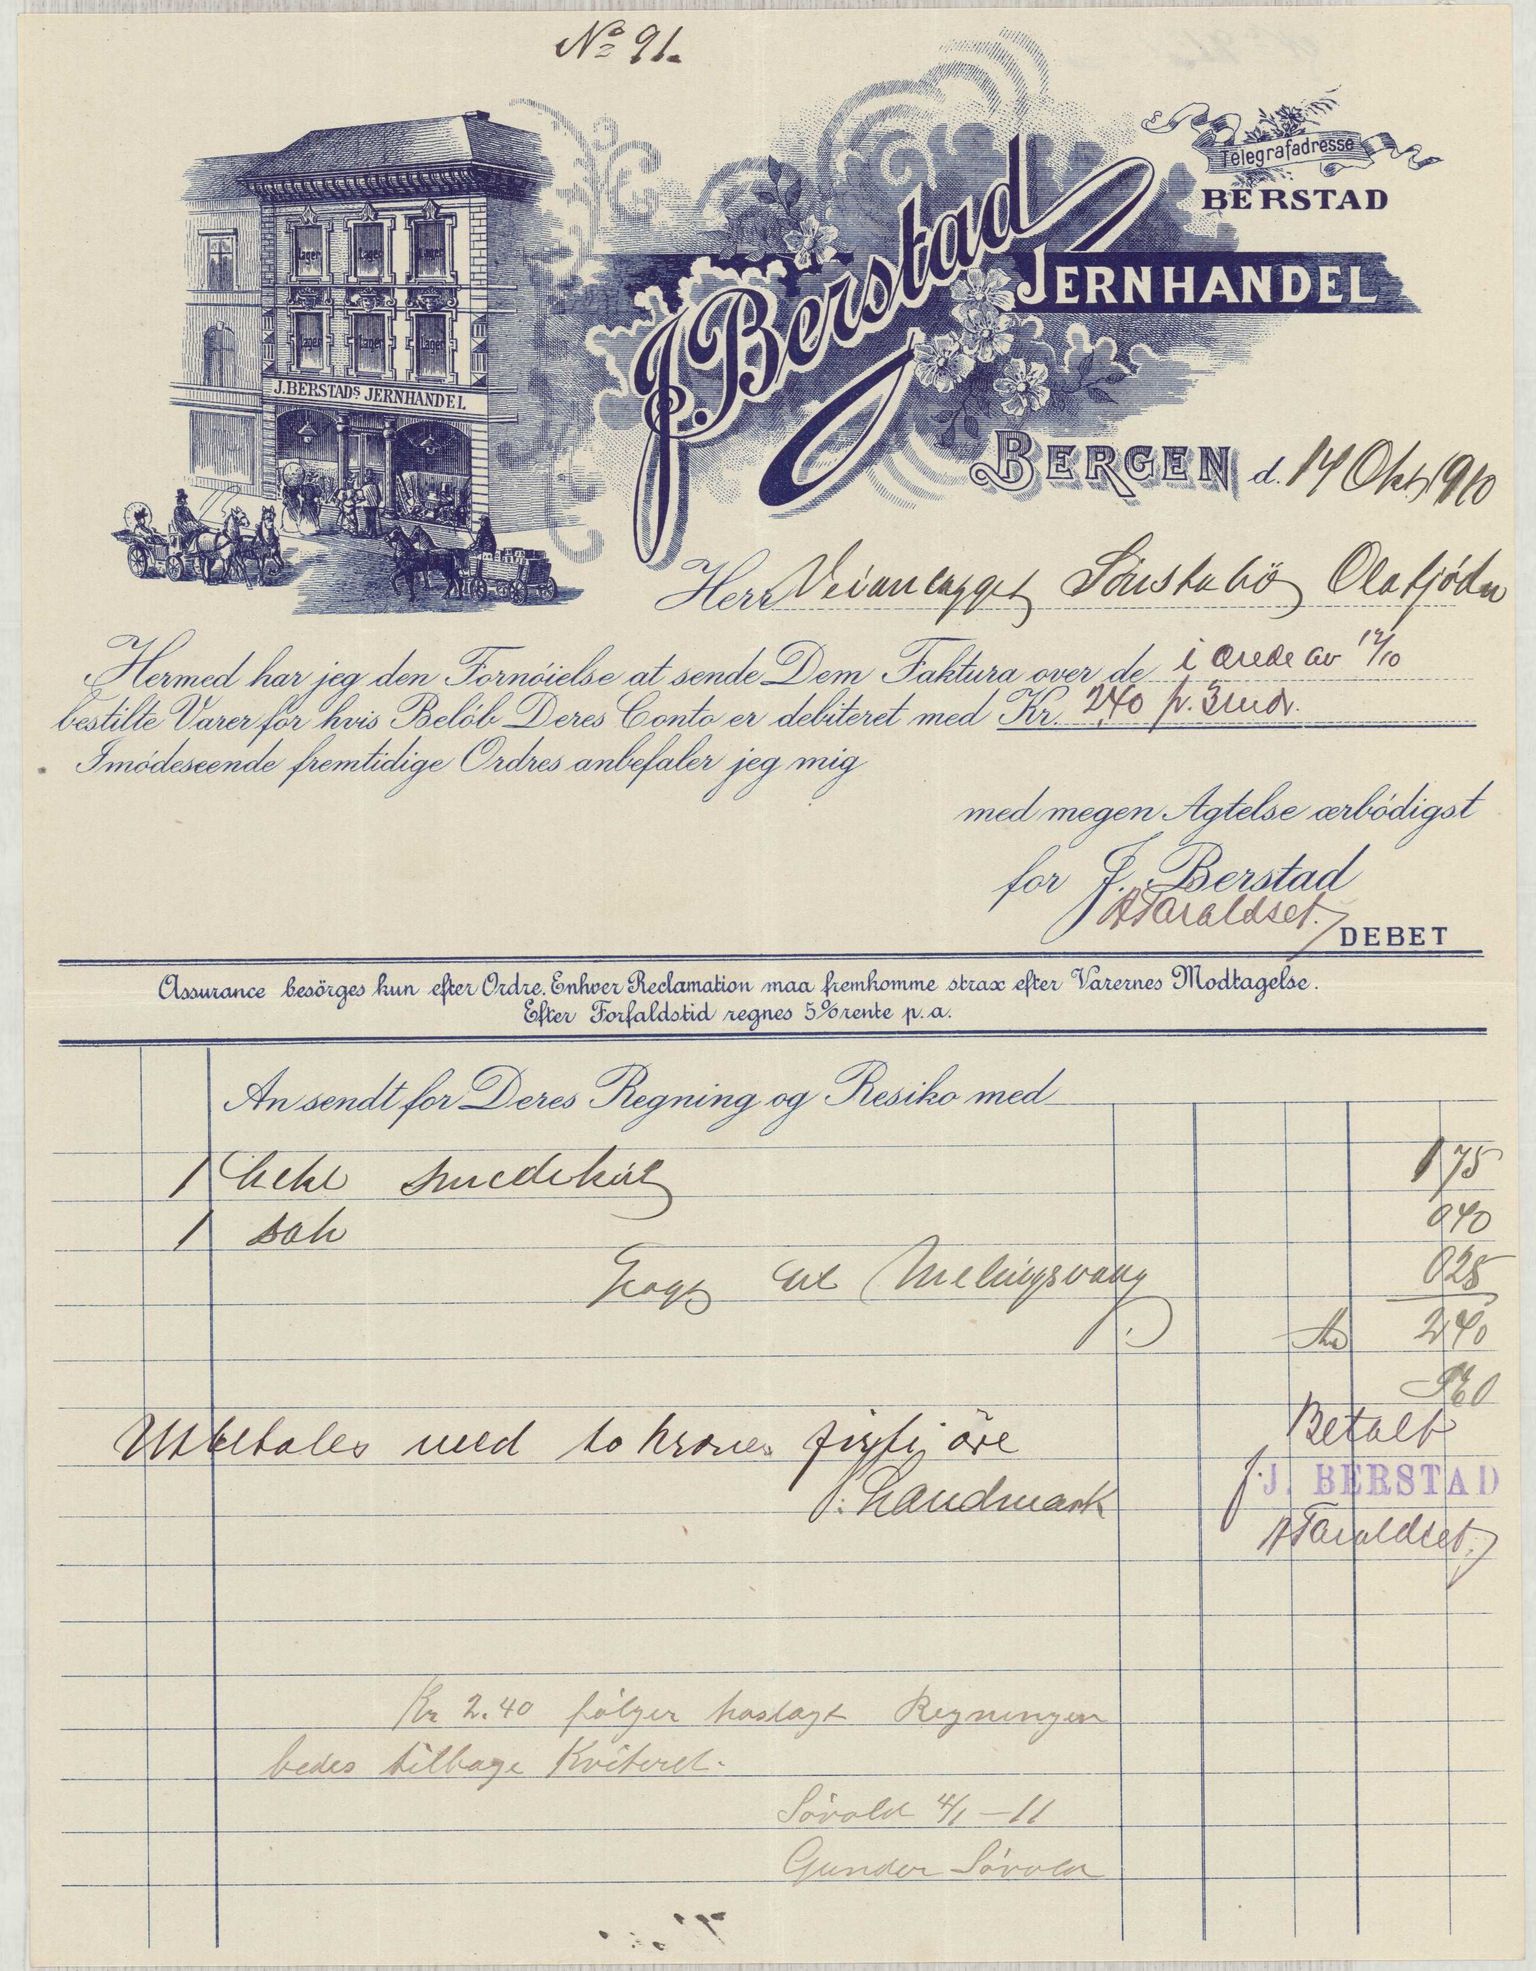 No 91.
Telegrafadresse
BERSTAD
J. Berstad
JERNHANDEL
Lager Lager Lager
Lager Lager Lager
J. BERSTADS JERNHANDEL
BERGEN d. 14 Okt 1910
Herr Veianlægget Sönstabö Olafjorden
Hermed har jeg den Fornöielse at sende Dem Faktura over de i ordre av 12/10
bestilte Varer för hvis Belöb Deres Conto er debiteret med Kr. 2,40 p. 3 mdr.
Imödeseende fremtidige Ordres anbefaler jeg mig
med megen Agtelse ærbödigst
for J. Berstad
A Taraldset.
DEBET
Assurance besörges kun efter Ordre. Enhver Reclamation maa fremkomme strax efter Varernes Modtagelse.
Efter Forfaldstid regnes 5% rente p. a.
An sendt for Deres Regning og Resiko med
1 hekt smedekul 1 75
1 sæk 0 40
til 0 25
Kr 2 40
Utbetales med to kroner firti öre
Betalt
J. Landmark
f. J. BERSTAD
A Taraldset.
Kr 2.40 fölger hoslagt Regningen
bedes tilbage Kviteret.
Sörold 4/1 - 11
Gunder Sörold